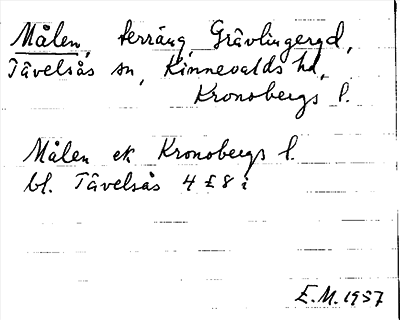 Målen, terräng, Grävlingeryd,
Tävelsås sn, Kinnevalds hd,
Kronobergs l.
Målen ek Kronobergs l.
bl. Tävelsås 4 E 8 i
E.M. 1937